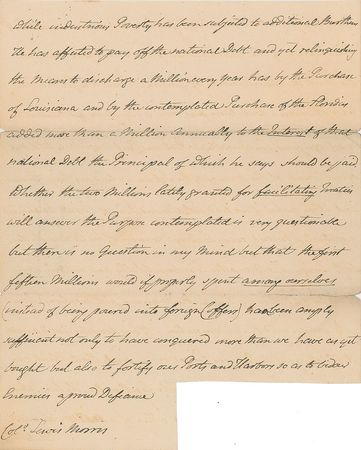 while industrious Poverty has been subjected to additional Burthens
He has affected to pay off the national Debt and yet relinquishing
the Means to discharge a Million every year has by the Purchase
of Louisiana and by the contemplated Purchase of the Floridas
added more than a Million Annually to the Interest of that
national Debt the Principal of which he says should be paid
Whether the two Millions lately granted for facilitating Treaties
will answer the Purpose contemplated is very questionable
but there is no Question in my Mind but that the first
fifteen Millions would if properly spent among ourselves
(instead of being poured into foreign Coffers) have been amply
sufficient not only to have conquered more than we have as yet
bought but also to fortify our Ports and Harbors so as to bid our
Enemies a proud Defiance
Colo. Lewis Morris